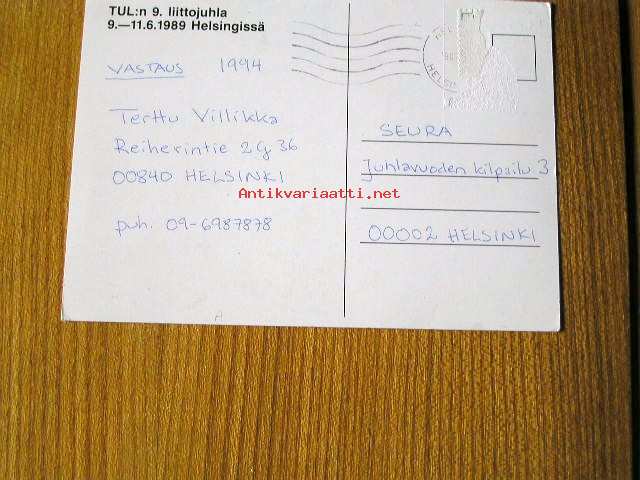 TUL:n 9. liittojuhla
9.—11.6.1989 Helsingissä
VASTAUS 1994
Terttu Villikka
Reiherintie 2 G 36
00840 HELSINKI
puh. 09-6987878
SEURA
Juhlavuoden kilpailu 3
00002 HELSINKI
Antikvariaatti.net